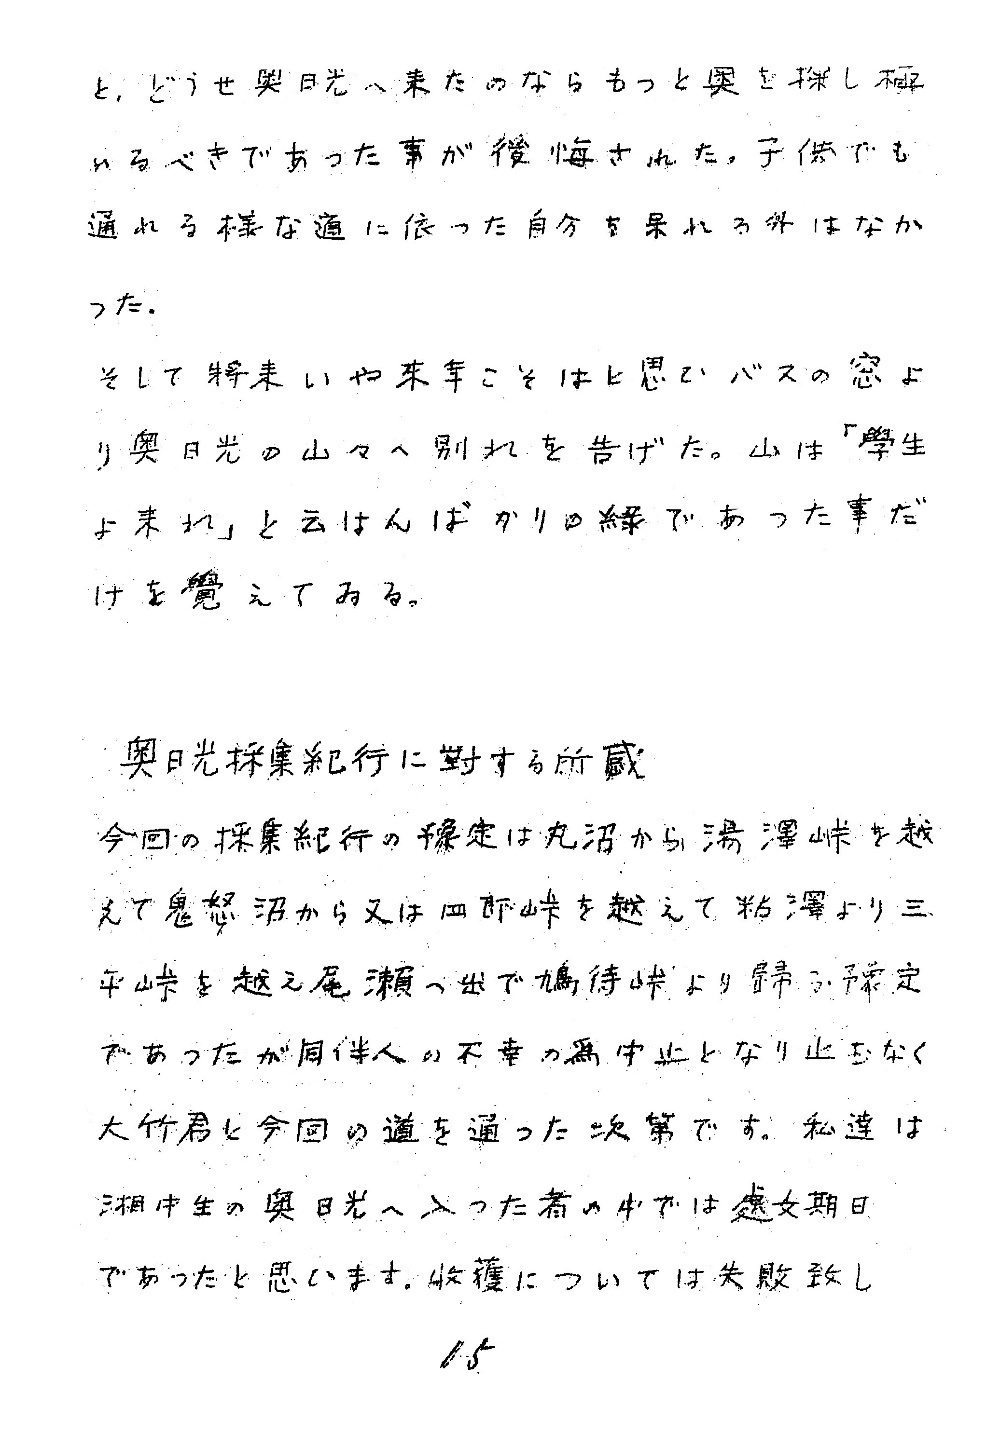 と、どうせ奥日光へ来たのならもっと奥を探し極
めるべきであった事が後悔された。子供でも
通れる様な道に依った自分を呆れる外はなか
った。
そして将来いや来年こそはと思ひバスの窓よ
り奥日光の山々へ別れを告げた。山は「學生
よ来れ」と云はんばかりの緑であった事だ
けを覺えてゐる。
奥日光採集紀行に對する所蔵
今回の採集紀行の豫定は丸沼から湯澤峠を越
えて鬼怒沼から又は四郎峠を越えて粘澤より三
平峠を越え尾瀬へ出で鳩待峠より歸る豫定
であつたが同伴人の不幸の為中止となり止むなく
大竹君と今回の道を通った次第です。私達は
湘中生の奥日光へ入った者の中では處女期日
であったと思います。收獲については失敗致し
15